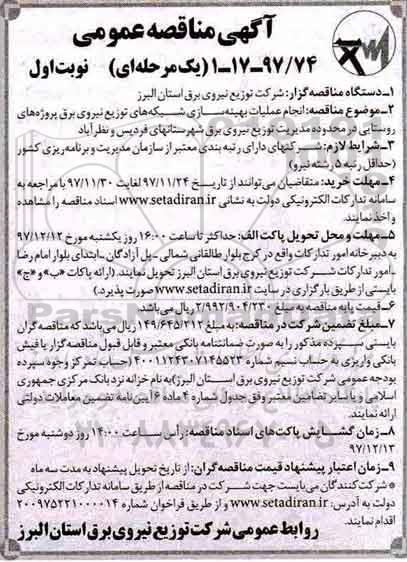 آگهی مناقصه عمومی
۹۷/۷۴-۱۷-۱ (یک مرحله‌ای) نوبت اول
۱-دستگاه مناقصه‌گزار: شرکت توزیع نیروی برق استان البرز
۲-موضوع مناقصه: انجام عملیات بهینه‌سازی شبکه‌های توزیع نیروی برق پروژه‌های
روستایی در محدوده مدیریت توزیع نیروی برق شهرستانهای فردیس و نظرآباد
۳-شرایط لازم: شرکتهای دارای رتبه بندی معتبر از سازمان مدیریت و برنامه‌ریزی کشور
(حداقل رتبه ۵ رشته نیرو)
۴-مهلت خرید: متقاضیان می‌توانند از تاریخ ۹۷/۱۱/۲۴ لغایت ۹۷/۱۱/۳۰ با مراجعه به
سامانه تدارکات الکترونیکی دولت به نشانی www.setadiran.ir اسناد مناقصه را مشاهده
و اخذ نمایند.
۵-مهلت و محل تحویل پاکت الف: حداکثر تا ساعت ۱۶:۰۰ روز یکشنبه مورخ ۹۷/۱۲/۱۲
به دبیرخانه امور تدارکات واقع در کرج بلوار طالقانی شمالی-پل آزادگان-ابتدای بلوار امام رضا
-امور تدارکات شرکت توزیع نیروی برق استان البرز تحویل نمایند. (ارائه پاکات «ب» و «ج»
بایستی از طریق بارگذاری در سایت www.setadiran.ir صورت پذیرد.)
۶-قیمت پایه مناقصه به مبلغ ۲/۹۹۲/۹۰۴/۲۳۰ ریال می‌باشد.
۷-مبلغ تضمین شرکت در مناقصه: به مبلغ ۱۴۹/۶۴۵/۲۱۲ ریال می‌باشد که مناقصه گران
بایستی سپرده مذکور را به صورت ضمانتنامه بانکی معتبر و قابل قبول مناقصه گزار یا فیش
بانکی واریزی به حساب نسیم شماره ۴۰۰۱۱۲۴۳۰۷۱۴۵۵۲۳ (حساب تمرکز وجوه سپرده
بودجه عمومی شرکت توزیع نیروی برق استان البرز) به نام خزانه نزد بانک مرکزی جمهوری
اسلامی و یا سایر تضامین معتبر وفق جدول شماره ۴ ماده ۶ آیین‌نامه تضمین معاملات دولتی
ارائه نمایند.
۸-زمان گشایش پاکت‌های اسناد مناقصه: رأس ساعت ۱۴:۰۰ روز دوشنبه مورخ
۹۷/۱۲/۱۳
۹-زمان اعتبار پیشنهاد قیمت مناقصه‌گران: از تاریخ تحویل پیشنهاد به مدت سه ماه
*شرکت کنندگان می‌بایست جهت شرکت در مناقصه از طریق سامانه تدارکات الکترونیکی
دولت به آدرس: www.setadiran.ir و از طریق فراخوان شماره ۲۰۰۹۷۵۲۲۱۰۰۰۰۱۴
اقدام نمایند.
روابط عمومی شرکت توزیع نیروی برق استان البرز